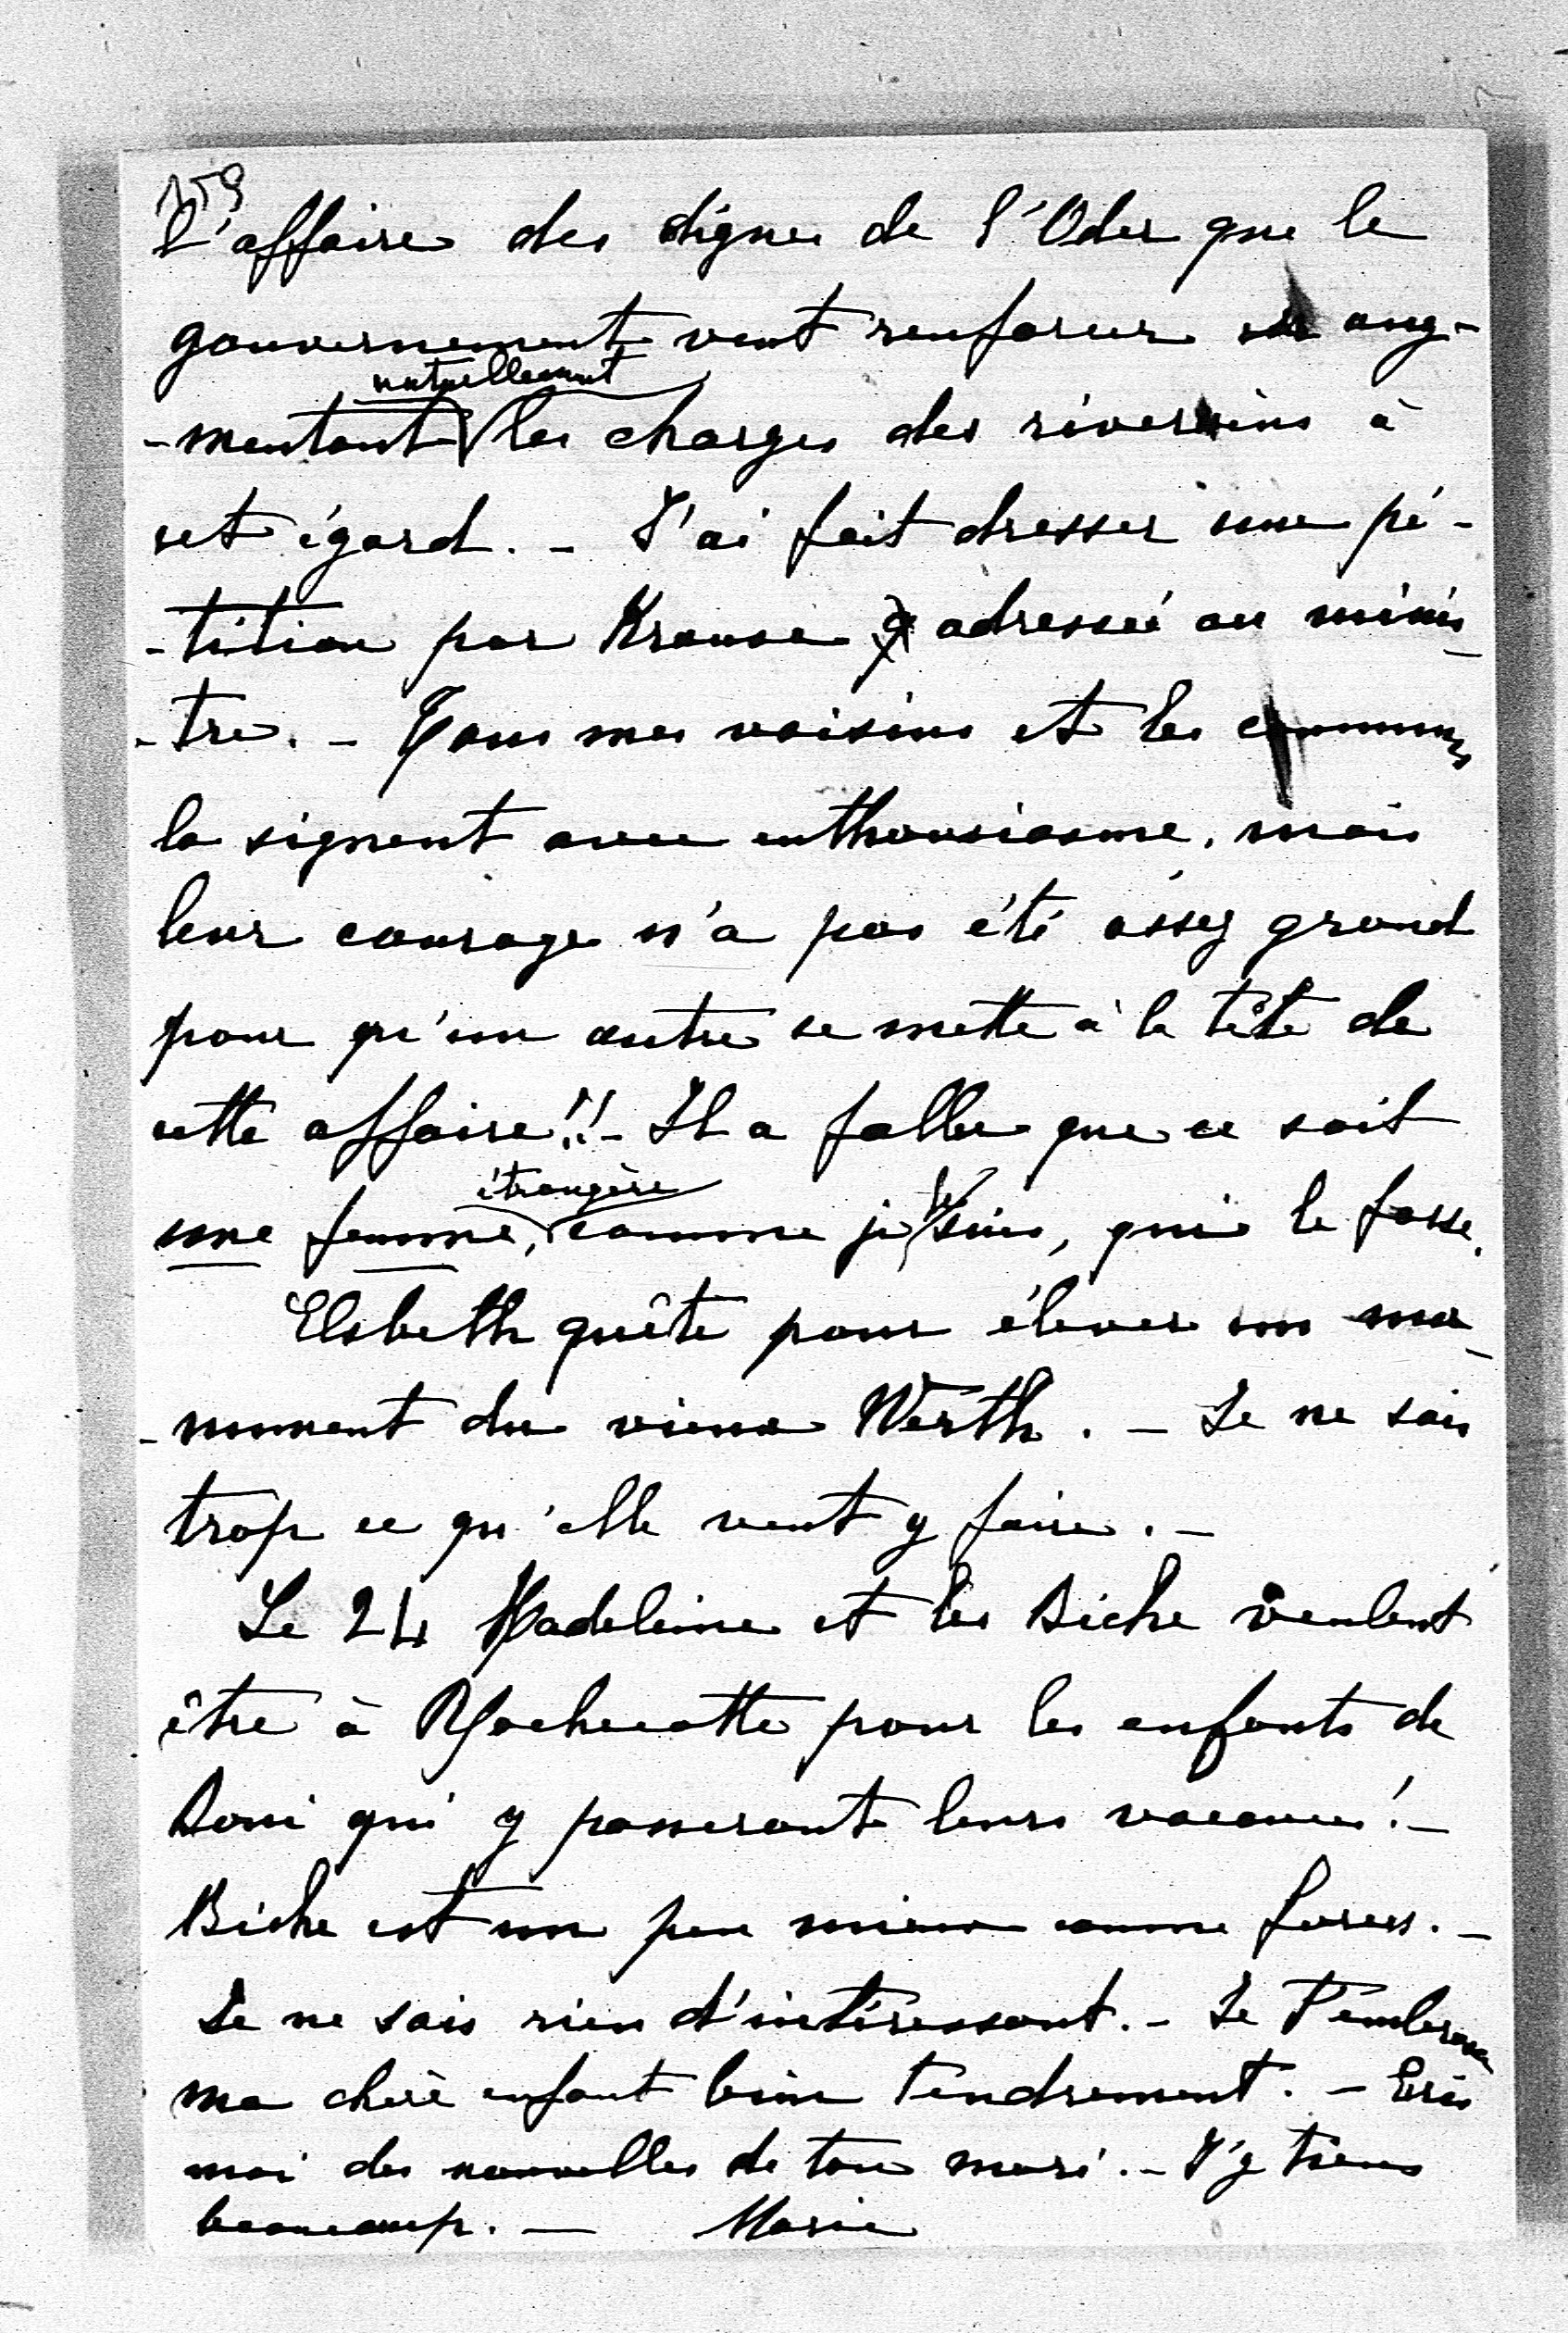 159
L'affaire des digues de l'Oder que le
gouvernement veut renforcer en aug-
naturellement
-mentant les charges des riverains à
cet égard. - J'ai fait dresser une pé-
-tition par Krause adressée au minis-
-tre. - Tous mes voisins et les communes
la signent avec enthousiasme, mais
leur courage n'a pas été assez grand
pour qu'un autre se mette à la tête de
cette affaire!! - Il a fallu que ce soit
étrangère
une femme, comme je le suis, qui le fasse.
Elsbeth quête pour élever un mo-
-nument du vieux Werth. - Je ne sais
trop ce qu'elle veut y faire. -
Le 24 Madeleine et les Biche veulent
être à Rochecotte pour les enfants de
Boni qui y passeront leurs vacances! -
Biche est un peu mieux comme forces. -
Je ne sais rien d'intéressant. - Je t'embrasse
ma chère enfant bien tendrement. - Ecris
moi des nouvelles de ton mari. - J'y tiens
beaucoup. - Marie